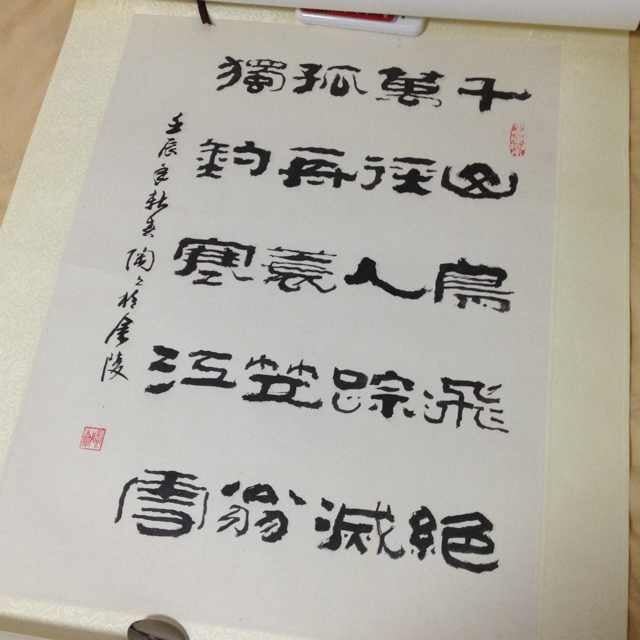 千山鳥飛絕
萬徑人踪滅
孤舟蓑笠翁
獨釣寒江雪
壬辰 陶 於金陵